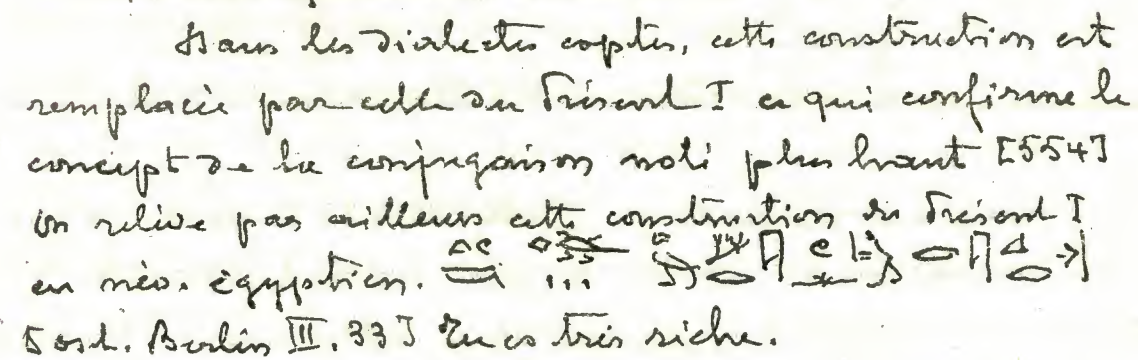 Dans les dialectes coptes, cette construction est
remplacée par celle du Présent I ce qui confirme le
concept de la conjugaison noté plus haut [554]
On relève par ailleurs cette construction du Présent I
en néo-égyptien.
[ost. Berlin III. 33] Tu es très riche.